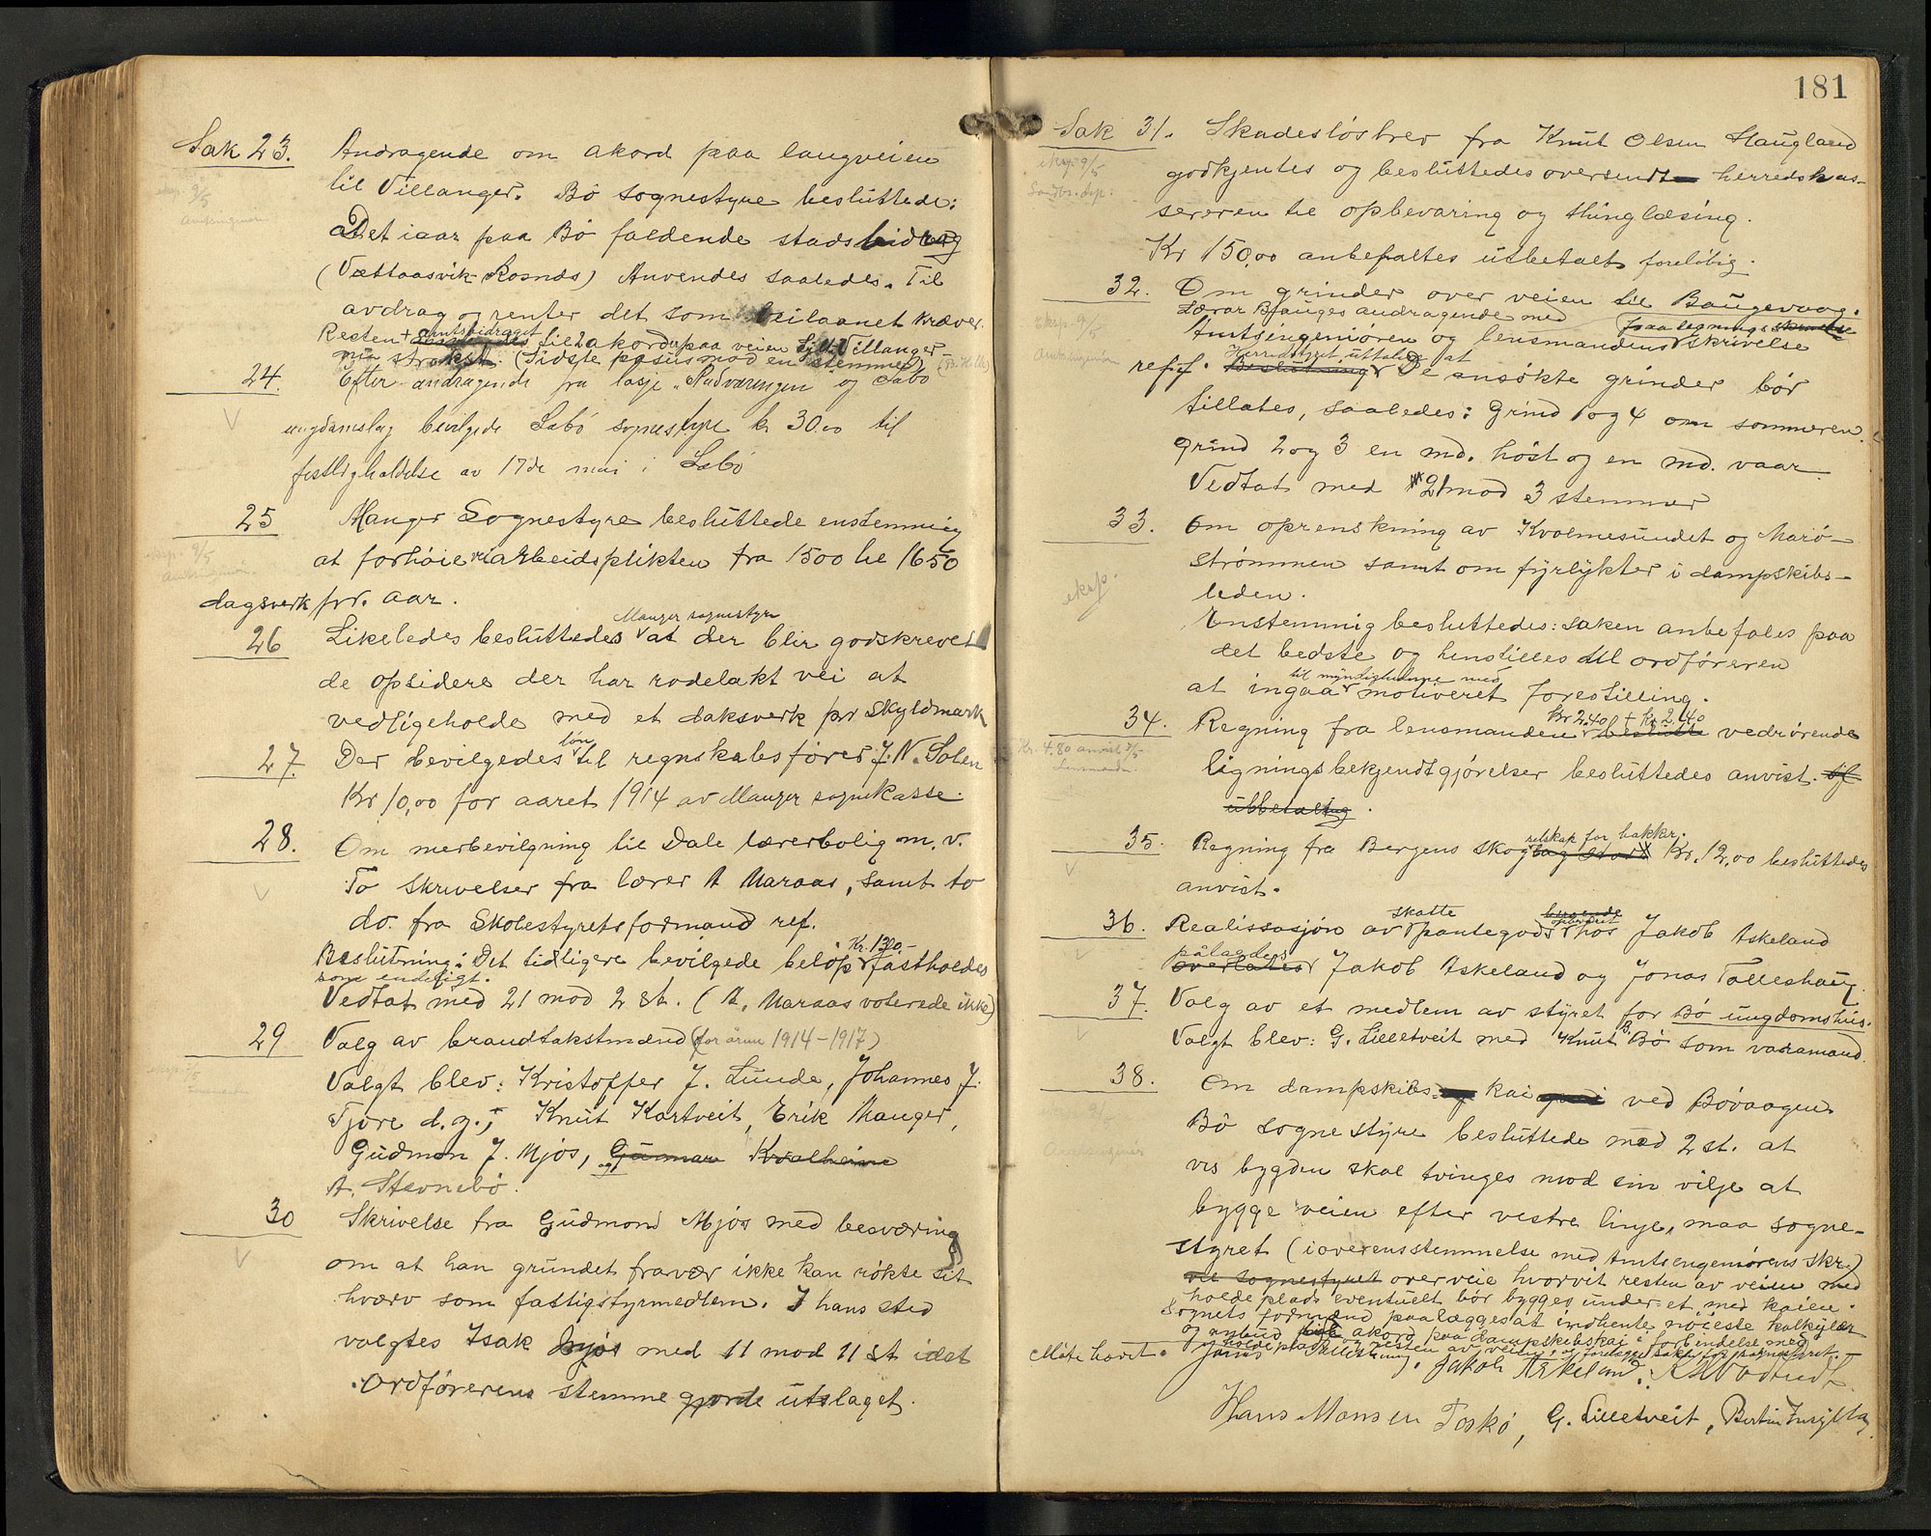 Sak 23. Andragende om akord paa langveien
til Villanger. Bö sognestyre besluttede:
at Det iaar paa Bö faldende stadsbidrag
(Vættaasvik-Rosnæs) Anvendes saaledes. Til
avdrag og renter det som veilaanet kræver.
Resten + amtsbidraget til akord paa veien Villanger
(Sidste passus mod en stemme)
24. Efter andragende fra losje "Nadværingen" og Sæbö
ungdomslag bevilgede Sæbö sognestyre kr 30.00 til
festligholdelse av 17de mai i Sæbö
25 Manger Sognestyre besluttede enstemmig
at forhöie veiarbeidsplikten fra 1500 til 1650
dagsverk pr. aar.
26 Likeledes besluttedes Manger sognestyre at der blir godskrevet
de opsidere der har rodelakt vei at
vedligeholde med et daksverk pr skyldmark
27. Der bevilgedes lön til regnskabsförer J. N. Solen
Kr 10,00 for aaret 1914 av Manger sognekasse.
28. Om merbevilgning til Dale lærerbolig m. v.
To skrivelser fra lærer A Maraas, samt to
do. fra Skolestyrets formand ref.
Beslutning: Det tidligere bevilgede belöp Kr. 1300.- fastholdes
som endeligt.
Vedtat med 21 mod 2 st. (A. Maraas voterede ikke)
29 Valg av brandtakstmænd (for årene 1914-1917)
Valgt blev: Kristoffer J. Lunde, Johannes J.
Tjore d. y., Knut Kartveit, Erik Manger,
Gudmon J. Mjös, og Gunnar Kvalheim
A. Stevnebö.
30 Skrivelse fra Gudmond Mjös med besværing
om at han grundet fravær ikke kan rökte sit
hværv som fattigstyrmedlem. I hans sted
valgtes Isak Mjös med 11 mod 11 st idet
Ordförerens stemme gjorde utslaget.
181
Sak 31. Skadeslösbrev fra Knut Olsen Haugland
eksp. 9/5
godkjentes og besluttedes oversendt herredskas-
sereren til opbevaring og thinglæsing.
Kr 150,00 anbefaltes utbetalt forelöbig.
32. Om grinder over veien til Baugevaag.
Lærar Bjauges andragende med
Amtsingeniören og lensmandens paalegnings skrivelse
eksp. 9/5
Amtsingeniör
ref. Beslutning Herredstyret uttaler at De ansökte grinder bör
tillates, saaledes: Grind 1 og 4 om sommeren.
grind 2 og 3 en md. höst og en md. vaar
Vedtat med 21 mod 3 stemmer
33. Om oprenskning av Kvolmesundet og Marö-
strömmen samt om fyrlykter i dampskibs-
eksp.
leden.
Enstemmig besluttedes: saken anbefales paa
det bedste og henstilles til ordföreren
at ingaa til myndigheterne med motiveret forestilling.
34. Regning fra lensmanden Kr 2.40 + Kr 2.40 vedrörende
Kr. 4.80 anvist
Lensmanden
ligningsbekjendtgjörelser besluttedes anvist. til
utbetaling.
35. Regning fra Bergens skogselskap for bakkr. Kr. 12,00 besluttedes
anvist.
36. Realissasjon av skatte pantegods hos Jakob Askeland
pålægdes overlates Jakob Askeland og Jonas Tolleshaug.
37. Valg av et medlem av styret for Bö ungdomshus.
Valgt blev: G. Lilletveit med Knut B. Bö som varamand.
38. Om dampskibs kai ved Bövaagen
Bö sognestyre besluttede mod 2 st. at
vis bygden skal tvinges mod sin vilje at
bygge veien efter vestre linje, maa sogne-
styret (i overensstemmelse med Amtsengeniörens skr.)
vil sognestyret overveie hvorvit resten av veien med
holdeplads eventuelt bör bygges under et med kaien.
Sognets formand paalægges at indhente nöieste kalkyler
og anbud paa akord paa dampskibskai i forbindelse med
holdeplads og resten av veien
Möte hævet. Jakob Askeland.
Hans Monsen Toskö, G. Lilletveit,